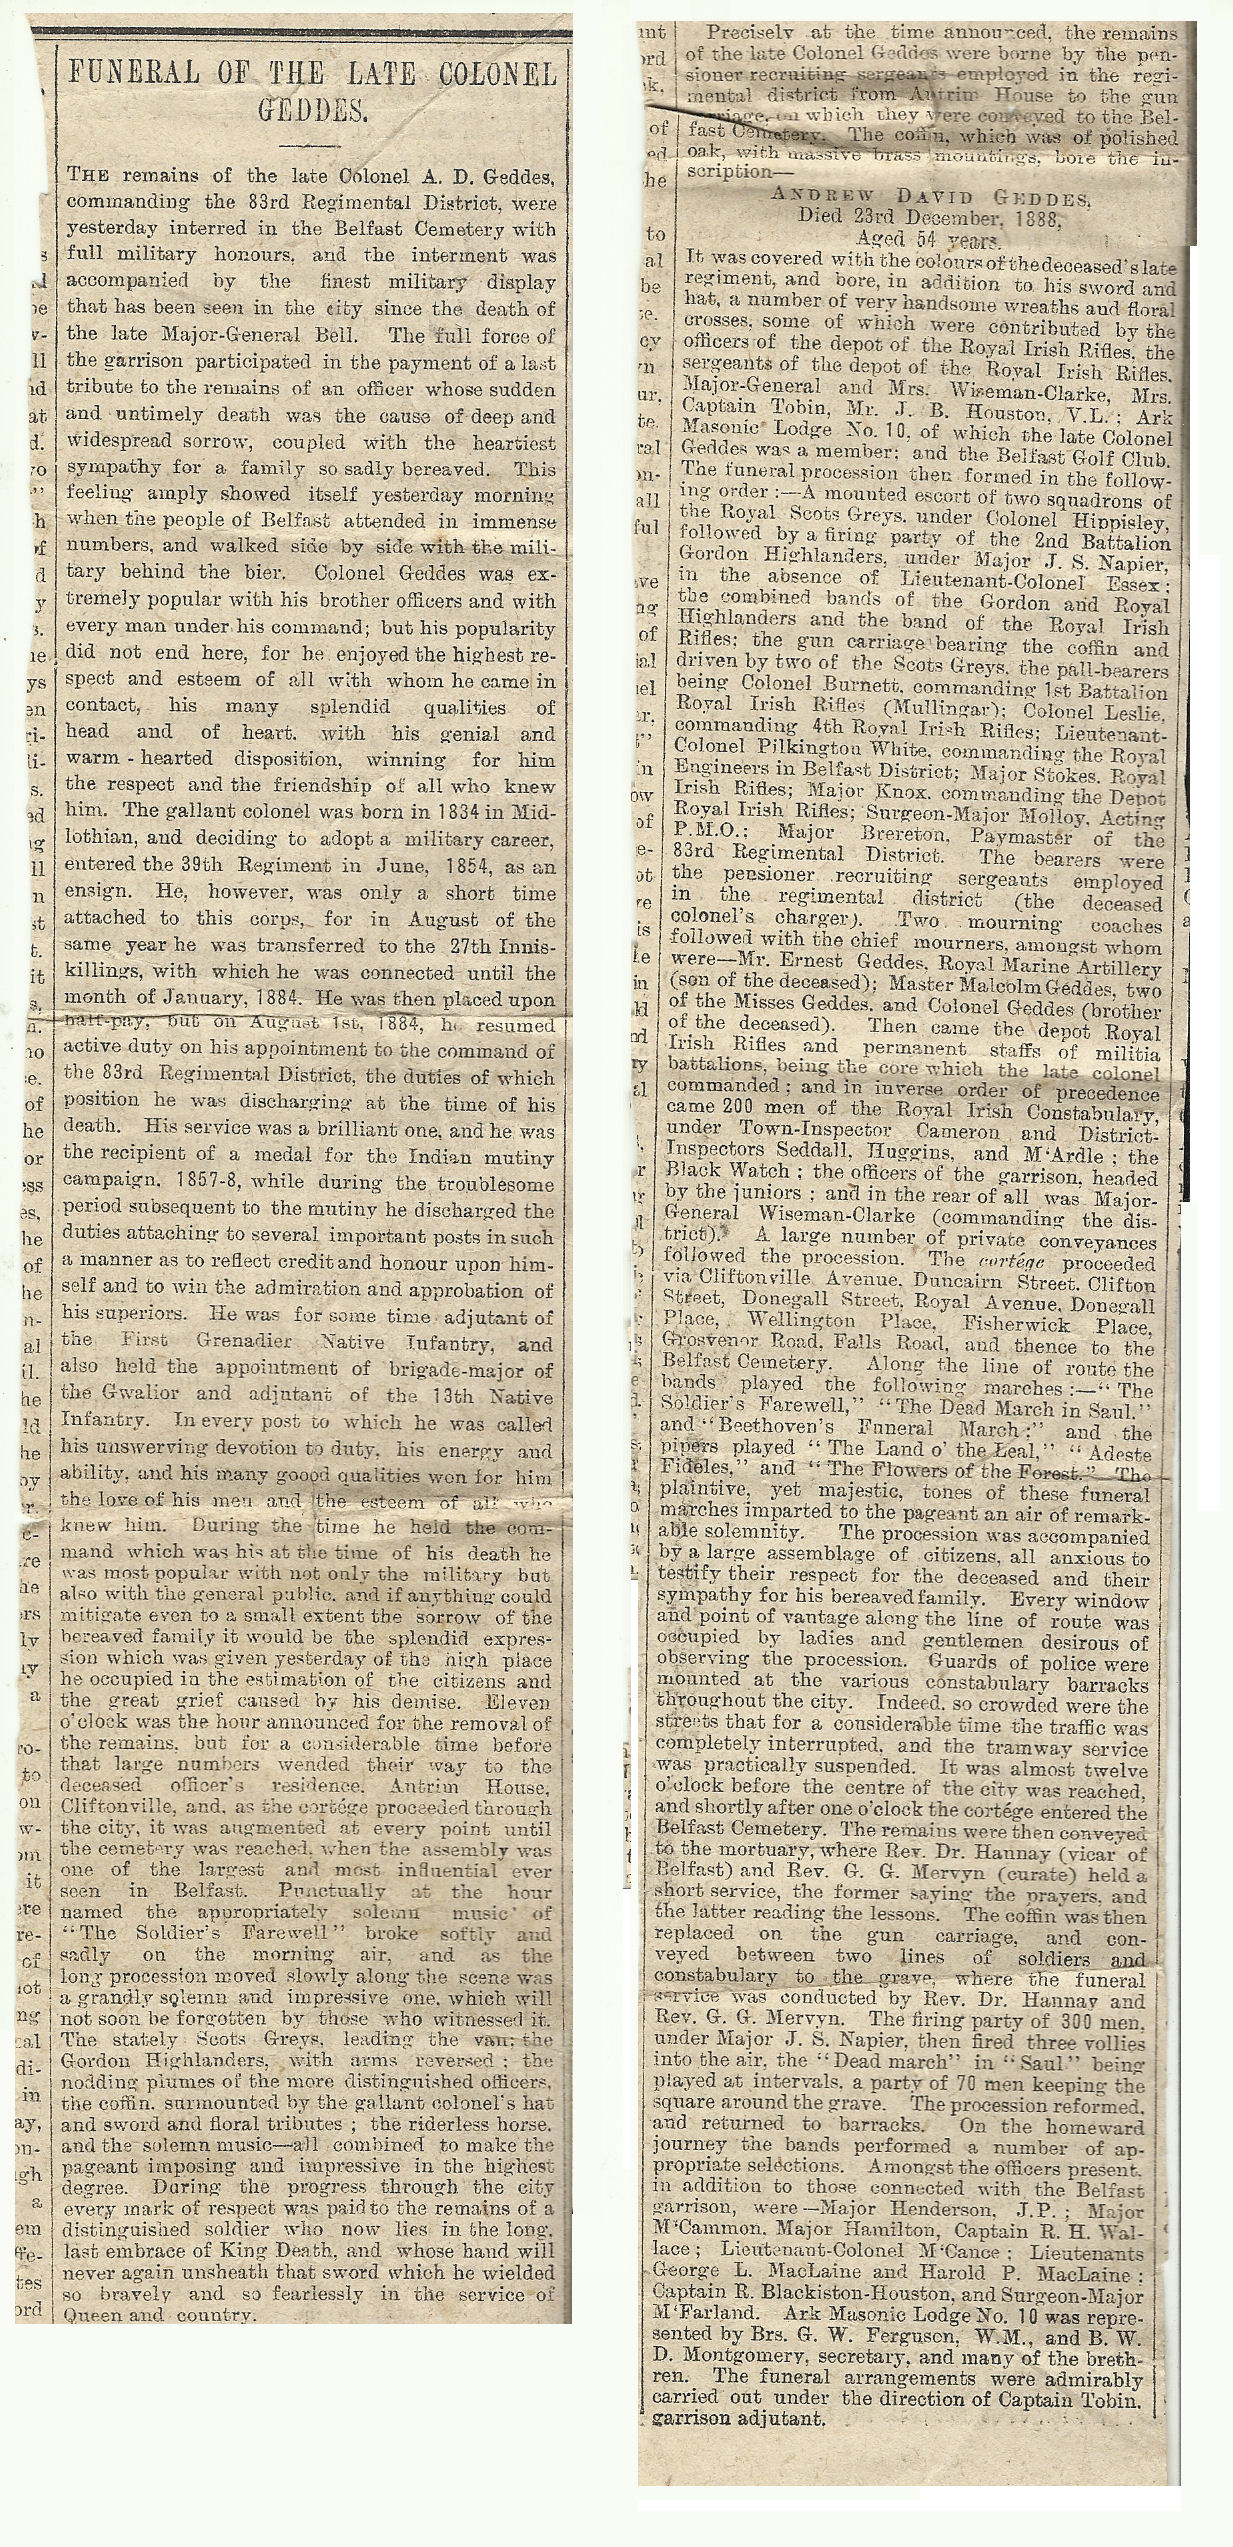 FUNERAL OF THE LATE COLONEL
GEDDES.
THE remains of the late Colonel A. D. Geddes,
commanding the 83rd Regimental District, were
yesterday interred in the Belfast Cemetery with
full military honours, and the interment was
accompanied by the finest military display
that has been seen in the city since the death of
the late Major-General Bell. The full force of
the garrison participated in the payment of a last
tribute to the remains of an officer whose sudden
and untimely death was the cause of deep and
widespread sorrow, coupled with the heartiest
sympathy for a family so sadly bereaved. This
feeling amply showed itself yesterday morning
when the people of Belfast attended in immense
numbers, and walked side by side with the mili-
tary behind the bier. Colonel Geddes was ex-
tremely popular with his brother officers and with
every man under his command; but his popularity
did not end here, for he enjoyed the highest re-
spect and esteem of all with whom he came in
contact, his many splendid qualities of
head and of heart, with his genial and
warm-hearted disposition, winning for him
the respect and the friendship of all who knew
him. The gallant colonel was born in 1834 in Mid-
lothian, and deciding to adopt a military career,
entered the 39th Regiment in June, 1854, as an
ensign. He, however, was only a short time
attached to this corps, for in August of the
same year he was transferred to the 27th Innis-
killings, with which he was connected until the
month of January, 1884. He was then placed upon
half-pay, but on August 1st, 1884, he resumed
active duty on his appointment to the command of
the 83rd Regimental District, the duties of which
position he was discharging at the time of his
death. His service was a brilliant one, and he was
the recipient of a medal for the Indian mutiny
campaign, 1857-8, while during the troublesome
period subsequent to the mutiny he discharged the
duties attaching to several important posts in such
a manner as to reflect credit and honour upon him-
self and to win the admiration and approbation of
his superiors. He was for some time adjutant of
the First Grenadier Native Infantry, and
also held the appointment of brigade-major of
the Gwalior and adjutant of the 13th Native
Infantry. In every post to which he was called
his unswerving devotion to duty, his energy and
ability, and his many goood qualities won for him
the love of his men and the esteem of all who
knew him. During the time he held the com-
mand which was his at the time of his death he
was most popular with not only the military but
also with the general public, and if anything could
mitigate even to a small extent the sorrow of the
bereaved family it would be the splendid expres-
sion which was given yesterday of the high place
he occupied in the estimation of the citizens and
the great grief caused by his demise. Eleven
o'clock was the hour announced for the removal of
the remains, but for a considerable time before
that large numbers wended their way to the
deceased officer's residence, Antrim House,
Cliftonville, and, as the cortége proceeded through
the city, it was augmented at every point until
the cemetery was reached, when the assembly was
one of the largest and most influential ever
seen in Belfast. Punctually at the hour
named the appropriately solemn music of
"The Soldier's Farewell" broke softly and
sadly on the morning air, and as the
long procession moved slowly along the scene was
a grandly solemn and impressive one, which will
not soon be forgotten by those who witnessed it.
The stately Scots Greys, leading the van; the
Gordon Highlanders, with arms reversed; the
nodding plumes of the more distinguished officers,
the coffin, surmounted by the gallant colonel's hat
and sword and floral tributes; the riderless horse,
and the solemn music—all combined to make the
pageant imposing and impressive in the highest
degree. During the progress through the city
every mark of respect was paid to the remains of a
distinguished soldier who now lies in the long,
last embrace of King Death, and whose hand will
never again unsheath that sword which he wielded
so bravely and so fearlessly in the service of
Queen and country.
Precisely at the time announced, the remains
of the late Colonel Geddes were borne by the pen-
sioner recruiting sergeants employed in the regi-
mental district from Antrim House to the gun
carriage, on which they were conveyed to the Bel-
fast Cemetery. The coffin, which was of polished
oak, with massive brass mountings, bore the in-
scription—
ANDREW DAVID GEDDES,
Died 23rd December, 1888,
Aged 54 years.
It was covered with the colours of the deceased's late
regiment, and bore, in addition to his sword and
hat, a number of very handsome wreaths and floral
crosses, some of which were contributed by the
officers of the depot of the Royal Irish Rifles, the
sergeants of the depot of the Royal Irish Rifles,
Major-General and Mrs. Wiseman-Clarke, Mrs.
Captain Tobin, Mr. J. B. Houston, V.L.; Ark
Masonic Lodge No. 10, of which the late Colonel
Geddes was a member; and the Belfast Golf Club.
The funeral procession then formed in the follow-
ing order:—A mounted escort of two squadrons of
the Royal Scots Greys, under Colonel Hippisley,
followed by a firing party of the 2nd Battalion
Gordon Highlanders, under Major J. S. Napier,
in the absence of Lieutenant-Colonel Essex;
the combined bands of the Gordon and Royal
Highlanders and the band of the Royal Irish
Rifles; the gun carriage bearing the coffin and
driven by two of the Scots Greys, the pall-bearers
being Colonel Burnett, commanding 1st Battalion
Royal Irish Rifles (Mullingar); Colonel Leslie,
commanding 4th Royal Irish Rifles; Lieutenant-
Colonel Pilkington White, commanding the Royal
Engineers in Belfast District; Major Stokes, Royal
Irish Rifles; Major Knox, commanding the Depot
Royal Irish Rifles; Surgeon-Major Molloy, Acting
P.M.O.; Major Brereton, Paymaster of the
83rd Regimental District. The bearers were
the pensioner recruiting sergeants employed
in the regimental district (the deceased
colonel's charger). Two mourning coaches
followed with the chief mourners, amongst whom
were—Mr. Ernest Geddes, Royal Marine Artillery
(son of the deceased); Master Malcolm Geddes, two
of the Misses Geddes, and Colonel Geddes (brother
of the deceased). Then came the depot Royal
Irish Rifles and permanent staffs of militia
battalions, being the core which the late colonel
commanded; and in inverse order of precedence
came 200 men of the Royal Irish Constabulary,
under Town-Inspector Cameron and District-
Inspectors Seddall, Huggins, and M'Ardle; the
Black Watch; the officers of the garrison, headed
by the juniors; and in the rear of all was Major-
General Wiseman-Clarke (commanding the dis-
trict). A large number of private conveyances
followed the procession. The cortége proceeded
via Cliftonville Avenue, Duncairn Street, Clifton
Street, Donegall Street, Royal Avenue, Donegall
Place, Wellington Place, Fisherwick Place,
Grosvenor Road, Falls Road, and thence to the
Belfast Cemetery. Along the line of route the
bands played the following marches:—"The
Soldier's Farewell," "The Dead March in Saul,"
and "Beethoven's Funeral March;" and the
pipers played "The Land o' the Leal," "Adeste
Fideles," and "The Flowers of the Forest." The
plaintive, yet majestic, tones of these funeral
marches imparted to the pageant an air of remark-
able solemnity. The procession was accompanied
by a large assemblage of citizens, all anxious to
testify their respect for the deceased and their
sympathy for his bereaved family. Every window
and point of vantage along the line of route was
occupied by ladies and gentlemen desirous of
observing the procession. Guards of police were
mounted at the various constabulary barracks
throughout the city. Indeed, so crowded were the
streets that for a considerable time the traffic was
completely interrupted, and the tramway service
was practically suspended. It was almost twelve
o'clock before the centre of the city was reached,
and shortly after one o'clock the cortége entered the
Belfast Cemetery. The remains were then conveyed
to the mortuary, where Rev. Dr. Hannay (vicar of
Belfast) and Rev. G. G. Mervyn (curate) held a
short service, the former saying the prayers, and
the latter reading the lessons. The coffin was then
replaced on the gun carriage, and con-
veyed between two lines of soldiers and
constabulary to the grave, where the funeral
service was conducted by Rev. Dr. Hannay and
Rev. G. G. Mervyn. The firing party of 300 men,
under Major J. S. Napier, then fired three vollies
into the air, the "Dead march" in "Saul" being
played at intervals, a party of 70 men keeping the
square around the grave. The procession reformed,
and returned to barracks. On the homeward
journey the bands performed a number of ap-
propriate selections. Amongst the officers present,
in addition to those connected with the Belfast
garrison, were—Major Henderson, J.P.; Major
M'Cammon, Major Hamilton, Captain R. H. Wal-
lace; Lieutenant-Colonel M'Cance; Lieutenants
George L. MacLaine and Harold P. MacLaine;
Captain R. Blackiston-Houston, and Surgeon-Major
M'Farland. Ark Masonic Lodge No. 10 was repre-
sented by Brs. G. W. Ferguson, W.M., and B. W.
D. Montgomery, secretary, and many of the breth-
ren. The funeral arrangements were admirably
carried out under the direction of Captain Tobin,
garrison adjutant.